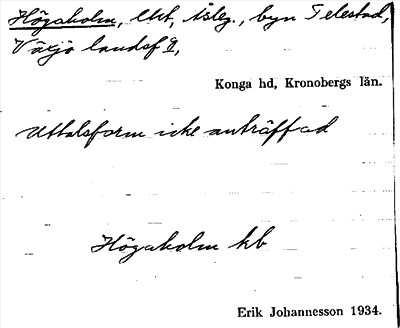 Högaholm, lht, åslg., byn Telestad,
Växjö landsf 9,
Konga hd, Kronobergs län.
Uttalsform icke anträffad
Högaholm kb
Erik Johannesson 1934.